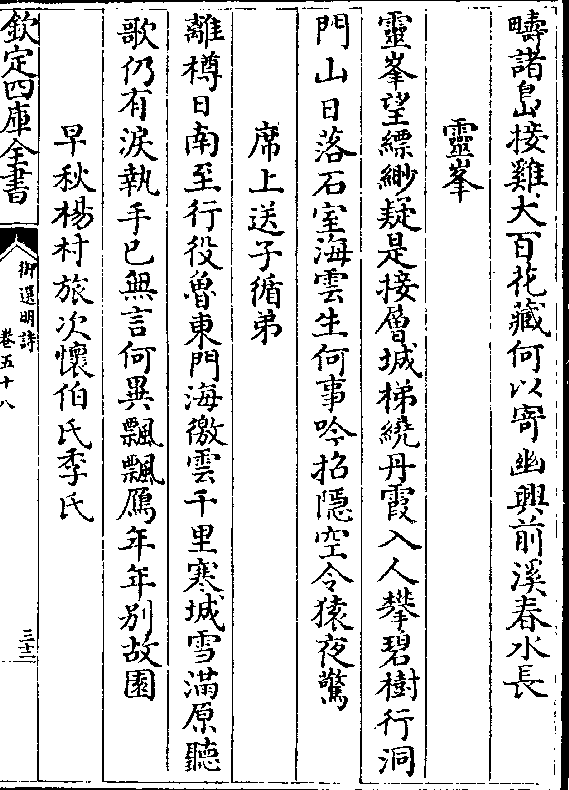 疇諸島接雞犬百花藏何以寄幽興前溪春水長
靈峯
靈峯望縹緲疑是接層城梯繞丹霞入人攀碧樹行洞
門山日落石室海雲生何事吟招隠空令猿夜驚
席上送子循弟
離樽日南至行役魯東門海徼雲千里寒城雪滿原聽
歌仍有淚執手已無言何異飄飄鴈年年別故園
早秋楊村旅次懷伯氏季氏
欽定四庫全書
御選明詩
卷五十八
三十二